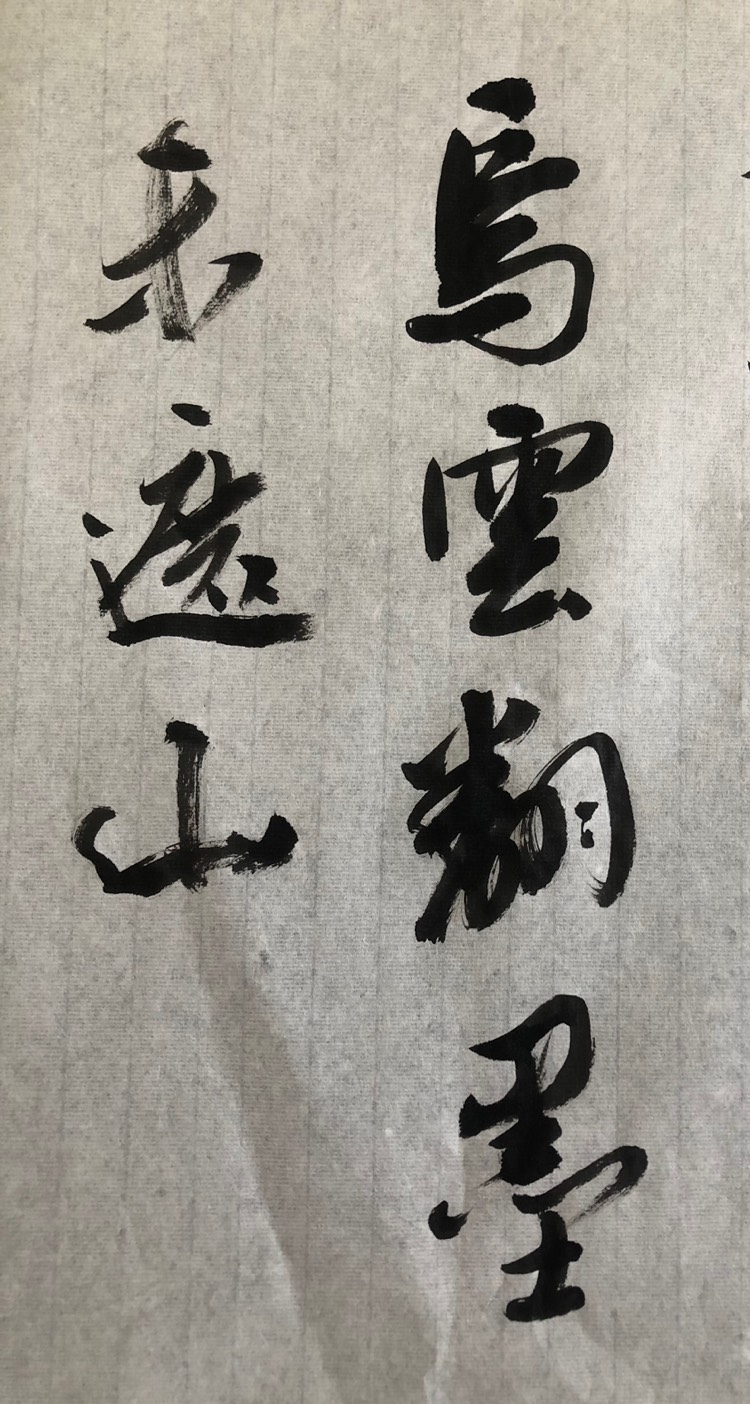 烏雲翻墨
未遮山